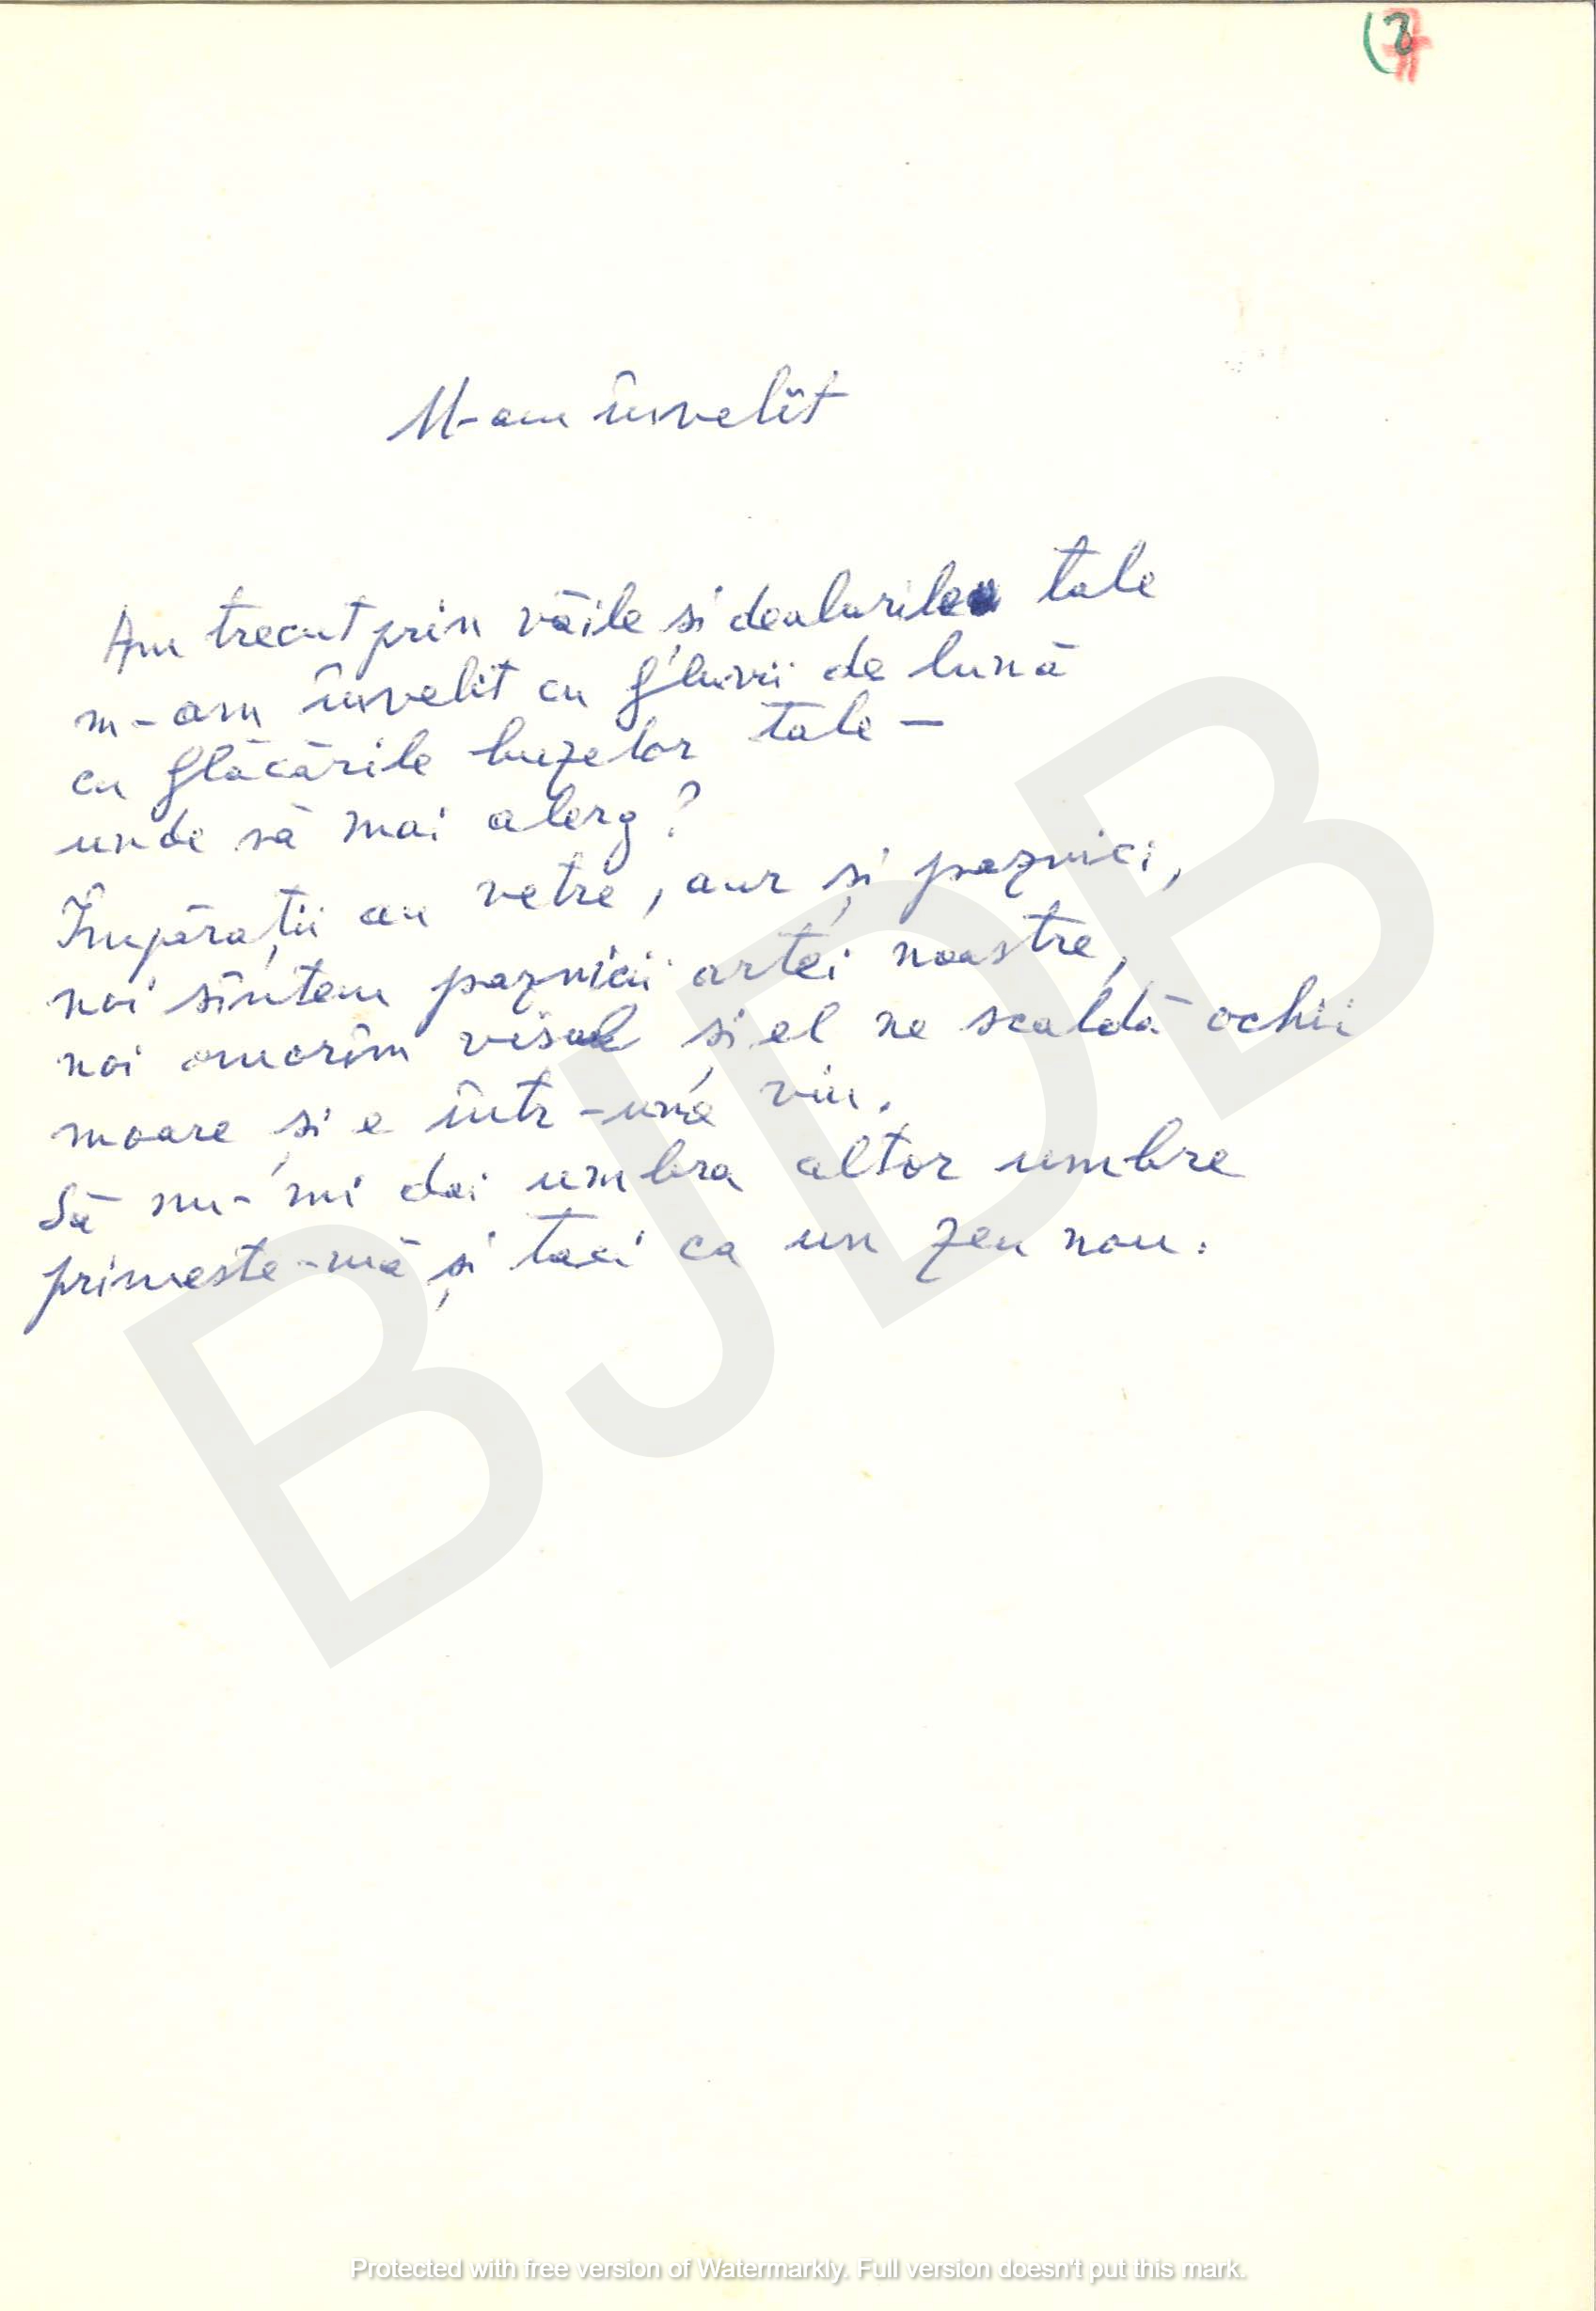 M-am învelit
Am trecut prin văile și dealurile tale
m-am învelit cu fluvii de lună
cu flăcările buzelor tale —
unde să mai alerg?
Împărații au vetre, aur și paznici,
noi sîntem paznicii artei noastre,
noi omorîm visul și el ne scaldă ochii
moare și e într-una viu.
Să nu-mi dai umbra altor umbre
primește-mă și taci ca un zeu nou.
BJDB
Protected with free version of Watermarkly. Full version doesn't put this mark.